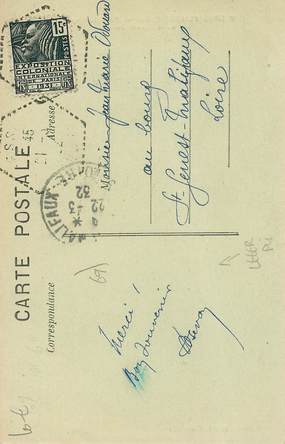 15c
EXPOSITION
COLONIALE
INTERNATIONALE
PARIS
1931
CARTE POSTALE
Correspondance
Adresse
Merci!
Bon souvenir
Monsieur Jean Marie Odouard
au bourg
St Genest-Malifaux
Loire
MALIFAUX
LOIRE
22
32
45
69